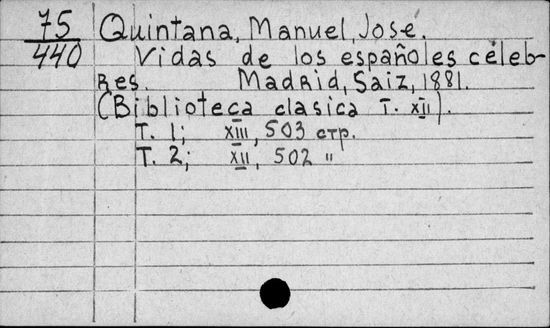 75 Quintana, Manuel, Jose.
440 Vidas de los españoles céleb-
Res. Madrid, Saiz, 1881.
(Biblioteca clasica T. XII).
T. 1; XIII, 503 стр.
T. 2; XII, 502 "